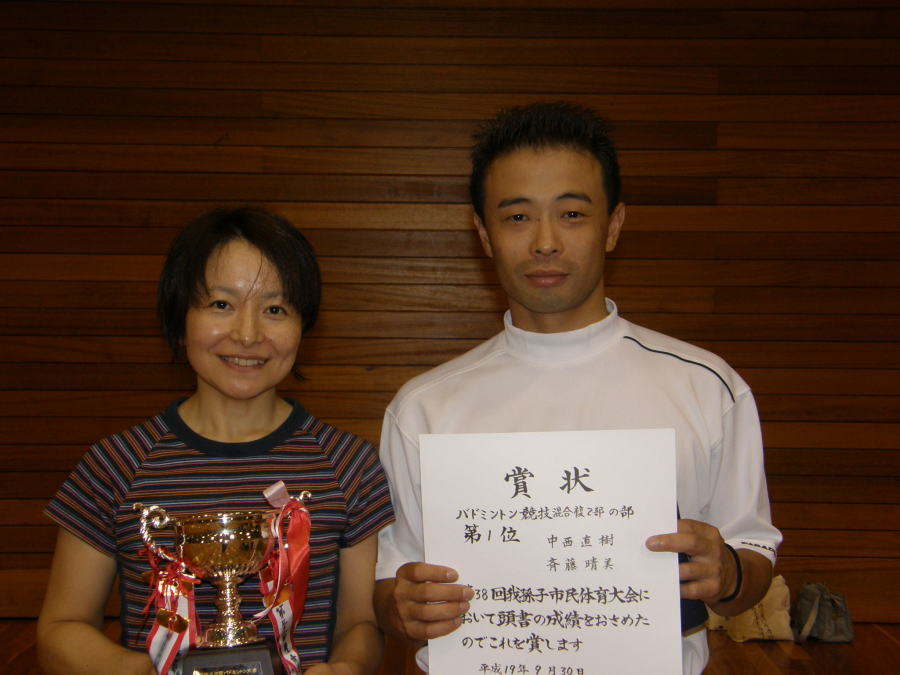 賞状
バドミントン競技混合複2部の部
第1位 中西直樹
斉藤晴美
38回我孫子市民体育大会に
おいて頭書の成績をおさめた
のでこれを賞します
平成19年9月30日